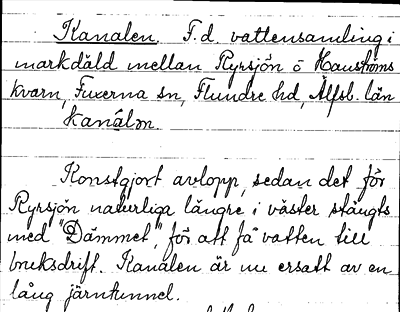 Kanalen. F.d. vattensamling i
markdäld mellan Ryrsjön o Haustroms
kvarn, Fuxerna sn, Flundre hd, Älfsb. län
kanáln.
Konstgjort avlopp, sedan det för
Ryrsjön naturliga längre i väster stängts
med "Dämmet", för att få vatten till
bruksdrift. Kanalen är nu ersatt av en
lång järntunnel.